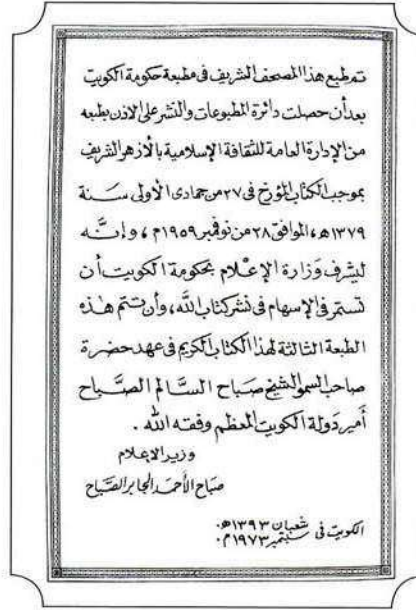 تم طبع هذا المصحف الشريف في مطبعة حكومة الكويت
بعد أن حصلت دائرة المطبوعات والنشر على الاذن بطبعه
من الإدارة العامة للثقافة الإسلامية بالأزهر الشريف
بموجب الكتاب المؤرخ في ٢٧ من جمادى الاولى سـنة
١٣٧٩ هـ، الموافق ٢٨ من نوفمبر ١٩٥٩م ، وإنَّـه
ليشرف وَزارة الإعْـلام بحكومة الكويت أن
تستمر في الإسهام في نشر كتاب الله، وأن تتم هـذه
الطبعة الثالثة لهذا الكتاب الكريم في عهد حضرة
صاحب السمو الشيخ صَبـاح السَّـالم الصَّبـاح
أمير دَولة الكويت المعظم وفقه الله .
وزير الإعلام
صباح الأحمد الجابر الصَّباح
الكويت في شعبان ١٣٩٣هـ.
سبتمبر ١٩٧٣م.